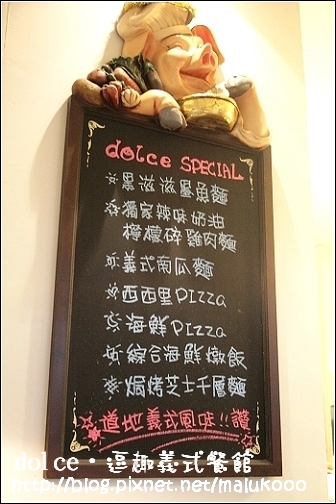 dolce SPECIAL
☼黑滋滋墨魚麵
☆獨家辣味奶油
檸檬碎雞肉麵
☼義式南瓜麵
☼西西里PIZZA
☼海鮮PIZZA
☼綜合海鮮燉飯
☼焗烤芝士千層麵
☆道地義式風味!!讚☆
dolce·逗趣義式餐館
http://blog.pixnet.net/malukooo